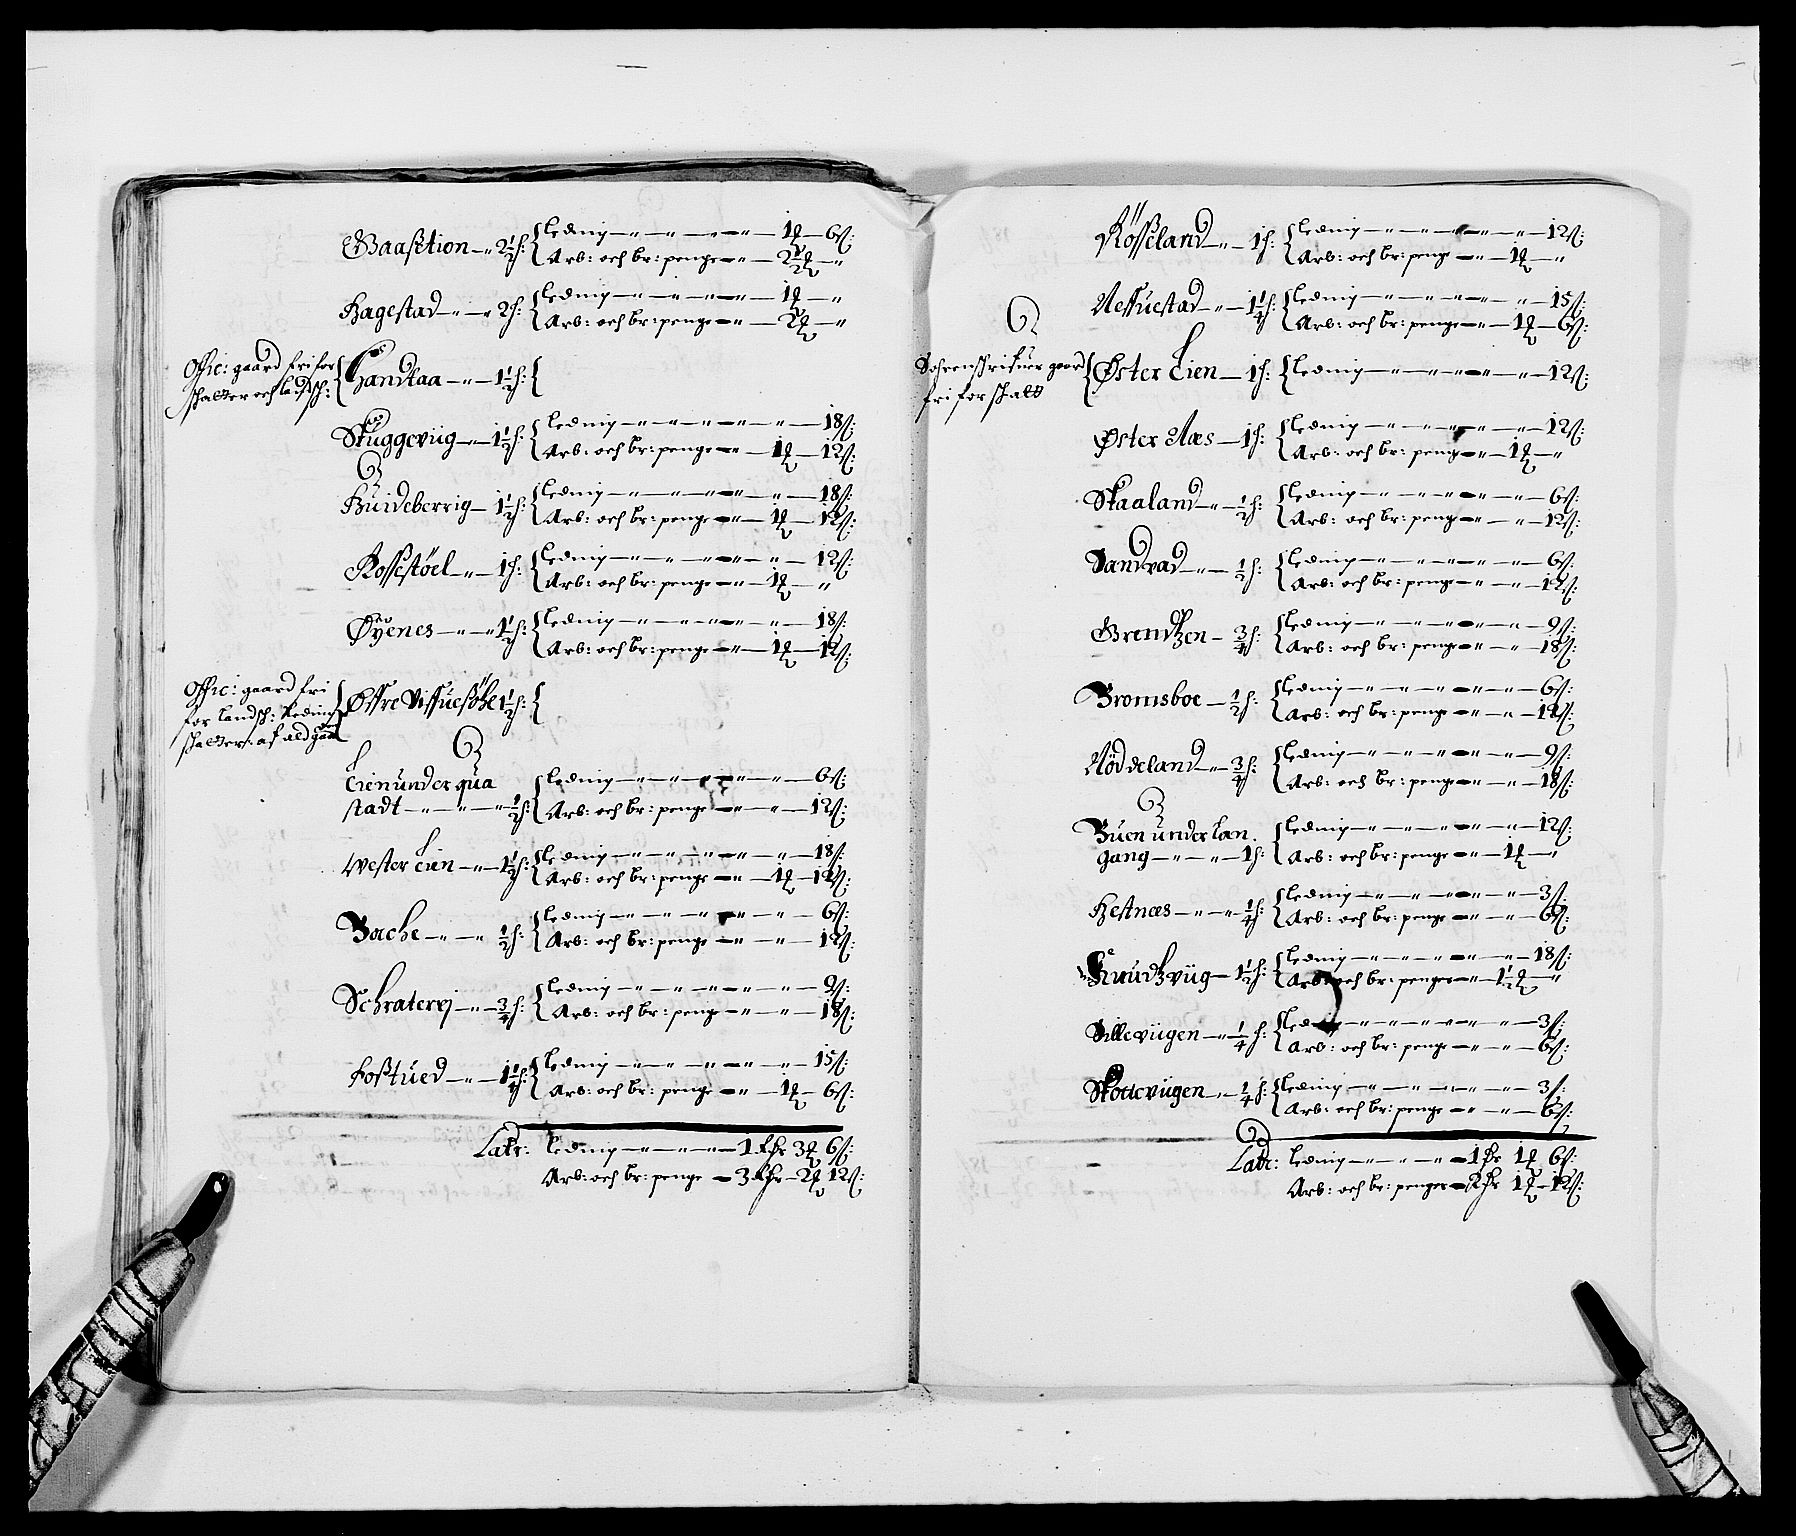 Baasetion – 2½ h: Leding – 1 ort – 6 s:
Arb: och br: penge – 2½ ort – "
Hagestad – 2 h: Leding – 1 ort – "
Arb: och br: penge – 2 ort – "
Offic: gaard fri for
schatter och ladsch:
Handtaa – 1½ h:
Skuggeviig – 1½ h: Leding – 18 s:
Arb: och br: penge – 1 ort – 12 s:
Huideberrig – 1½ h: Leding – 18 s:
Arb: och br: penge – 1 ort – 12 s:
Rossestøel – 1 h: Leding – 12 s:
Arb: och br: penge – 1 ort – "
Øyenes – 1½ h: Leding – 18 s:
Arb: och br: penge – 1 ort – 12 s:
Offic: gaard fri
for landsch: Leding
schatter: af
Øfre 1½ h:
Lien under qua
stadt – ½ h: Leding – 6 s:
Arb: och br: penge – 12 s:
Wester Lien – 1½ h: Leding – 18 s:
Arb: och br: penge – 1 ort – 12 s:
Bache – ½ h: Leding – 6 s:
Arb: och br: penge – 12 s:
Schraterej – ¾ h: Leding – 9 s:
Arb: och br: penge – 18 s:
Fostued – 1¼ h: Leding – 15 s:
Arb: och br: penge – 1 ort – 6 s:
Latr: Leding – 1 Rhr 3 ort 6 s:
Arb: och br: penge – 3 Rhr – 2 ort 12 s:
Røsseland – 1 h: Leding – 12 s:
Arb: och br: penge – 1 ort – "
Neffuestad – 1¼ h: Leding – 15 s:
Arb: och br: penge – 1 ort – 6 s:
Sohrenschrifuer gaard
fri for schatt
Øster Lien – 1 h: Leding – 12 s:
Øster Aas – 1 h: Leding – 12 s:
Arb: och br: penge – 1 ort – "
Skaaland – ½ h: Leding – 6 s:
Arb: och br: penge – 12 s:
Sandvad – ½ h: Leding – 6 s:
Arb: och br: penge – 12 s:
Brendtzen – ¾ h: Leding – 9 s:
Arb: och br: penge – 18 s:
Bromsboe – ½ h: Leding – 6 s:
Arb: och br: penge – 12 s:
Nøddeland – ¾ h: Leding – 9 s:
Arb: och br: penge – 18 s:
Buen under lan
gang – 1 h: Leding – 12 s:
Arb: och br: penge – 1 ort – "
Hestnæs – ¼ h: Leding – 3 s:
Arb: och br: penge – 6 s:
Knudtzviig – 1½ h: Leding – 18 s:
Arb: och br: penger – 1½ ort – "
Silleviigen – ¼ h: Leding – 3 s:
Arb: och br: penge – 6 s:
Skotteviigen – ¼ h: Leding – 3 s:
Arb: och br: penge – 6 s:
Latr: Leding – 1 Rhr 1 ort 6 s:
Arb: och br: penger – 2 Rhr 1 ort – 12 s: